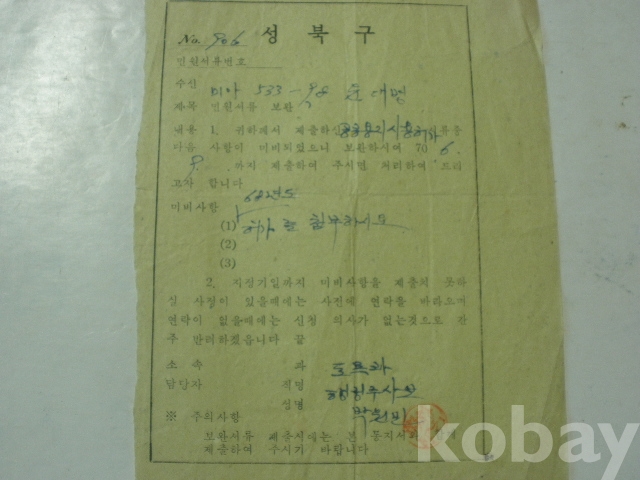 No. 906 성북구
민원서류번호
수신 미아 533-98 윤대명
제목 민원서류 보완
내용 1. 귀하께서 제출하신 류중
다음 사항이 미비되었으니 보완하시여 70 6.
9. 까지 제출하여 주시면 처리하여 드리
고자 합니다
68년도
미비사항
(1) 허가 로 첨부하시고
(2)
(3)
2. 지정기일까지 미비사항을 제출치 못하
실 사정이 있을때에는 사전에 연락을 바라오며
연락이 없을때에는 신청 의사가 없는것으로 간
주 반려하겠읍니다 끝
소속 과 토목과
담당자 직명 행정주사보
성명 박
※ 주의사항
보완서류 제출시에는 본 통지서와 함께
제출하여 주시기 바랍니다
kobay